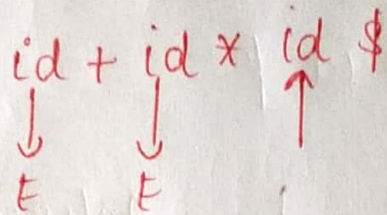 id + id * id $
E E